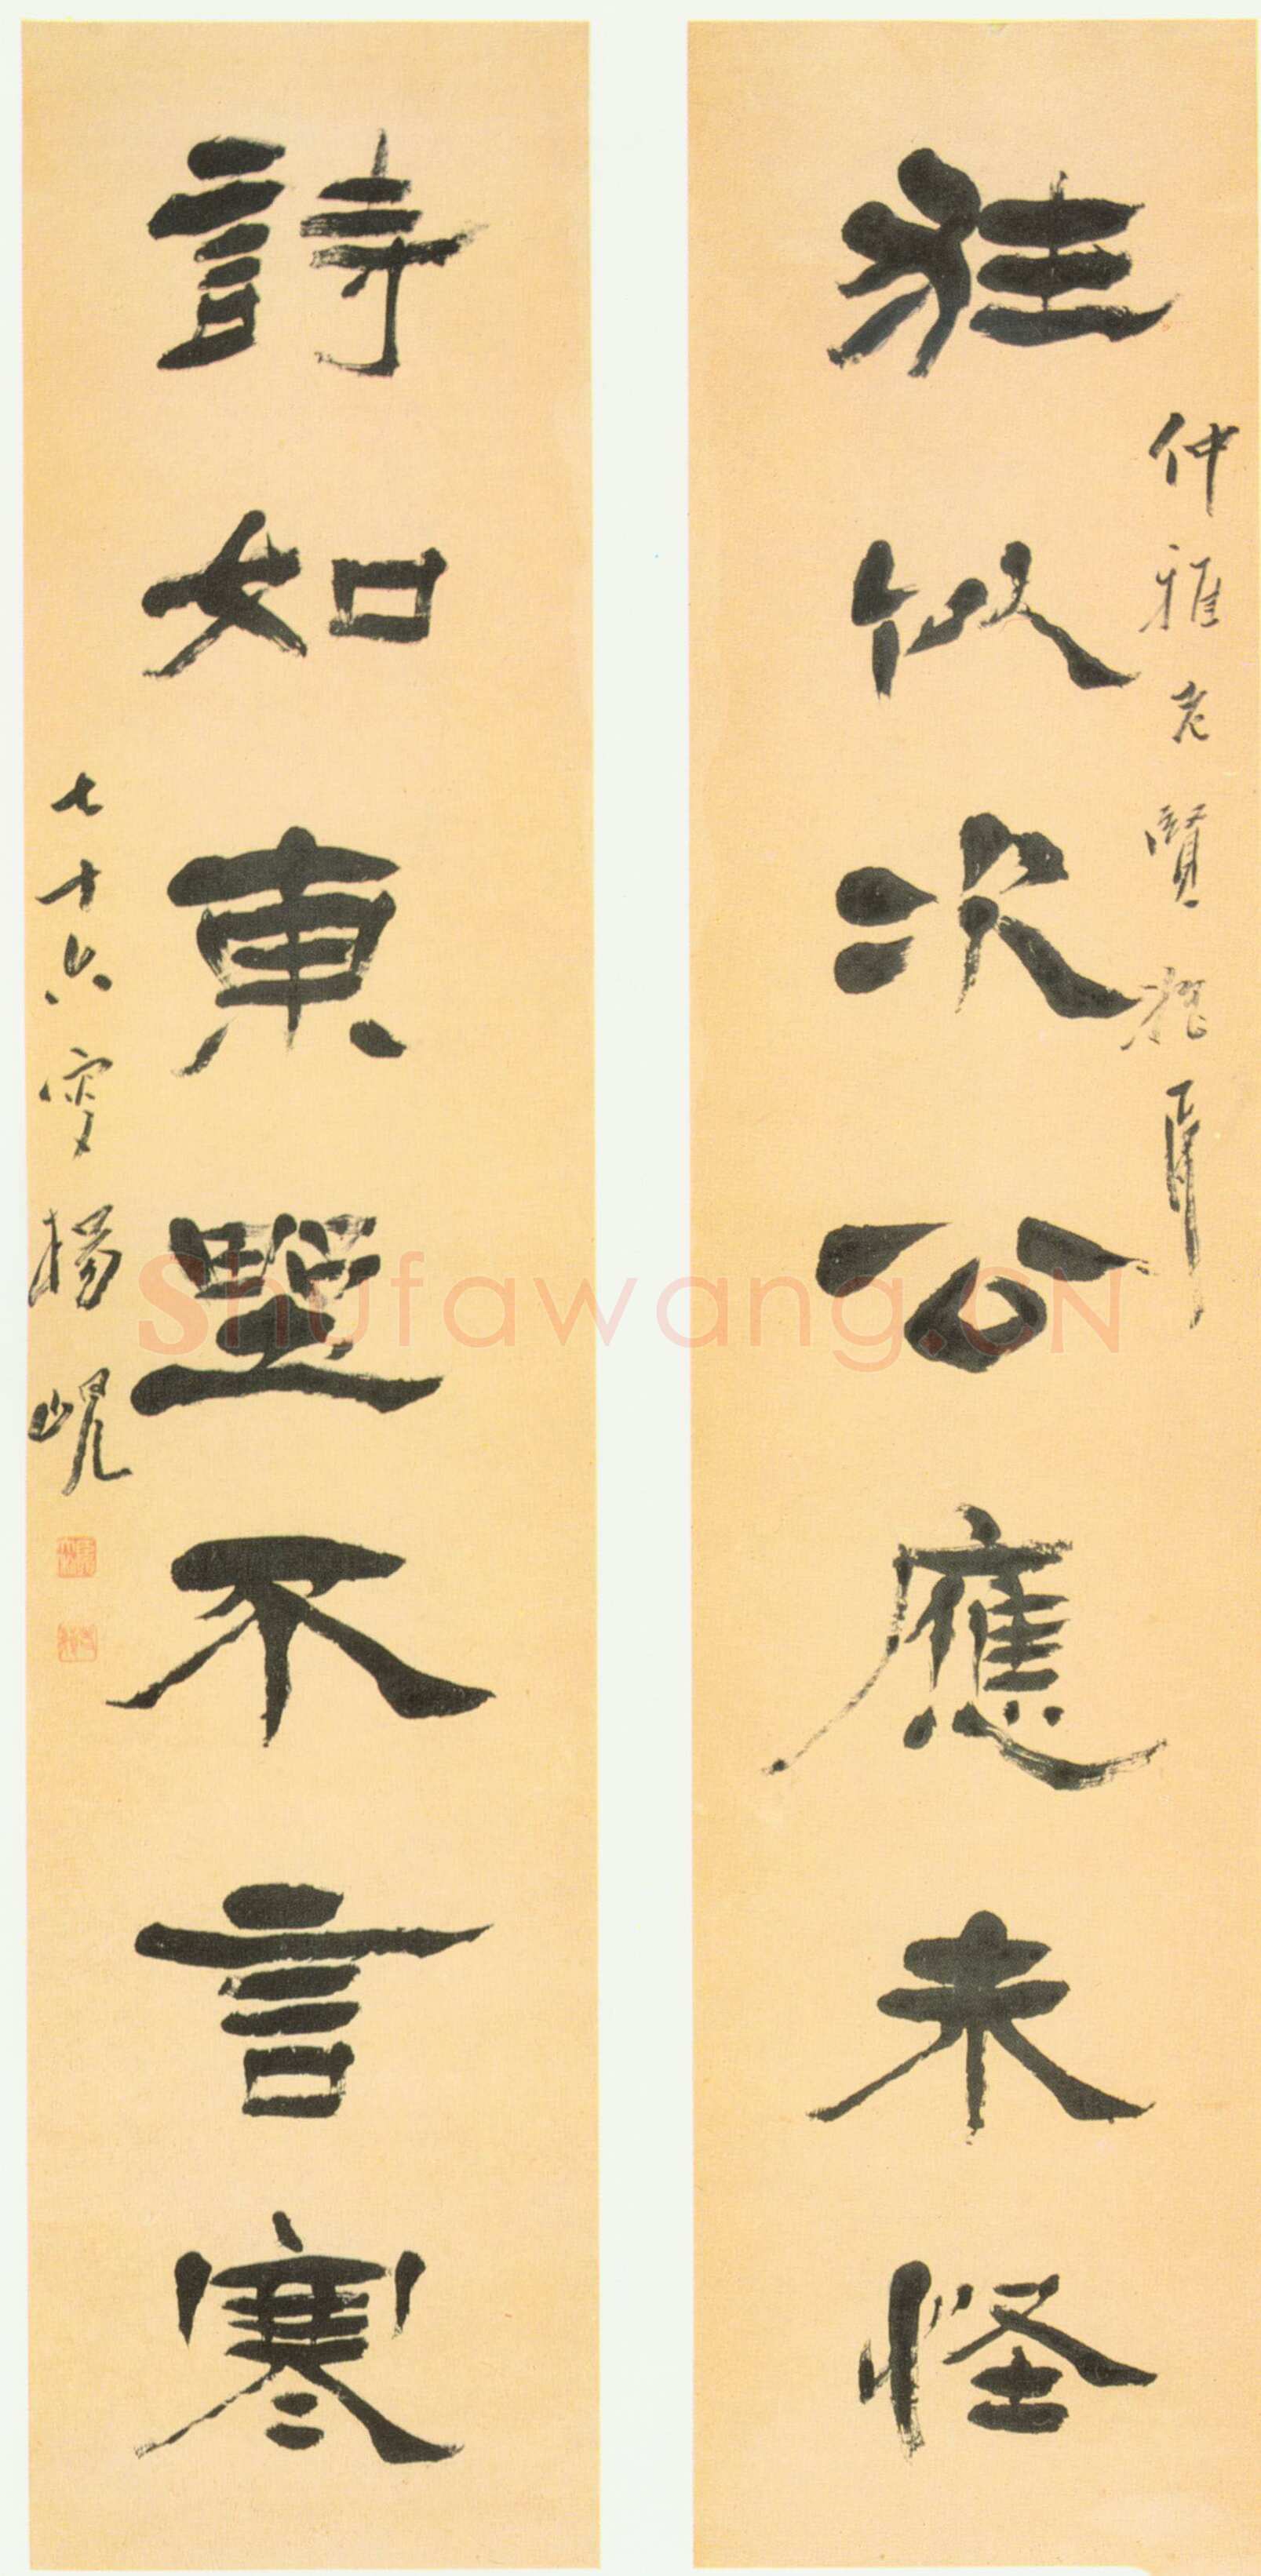 狂似次公應未怪
仲雅老賢姪屑
詩如東埜不言寒
七十六叟楊峴
Shufawang.CN